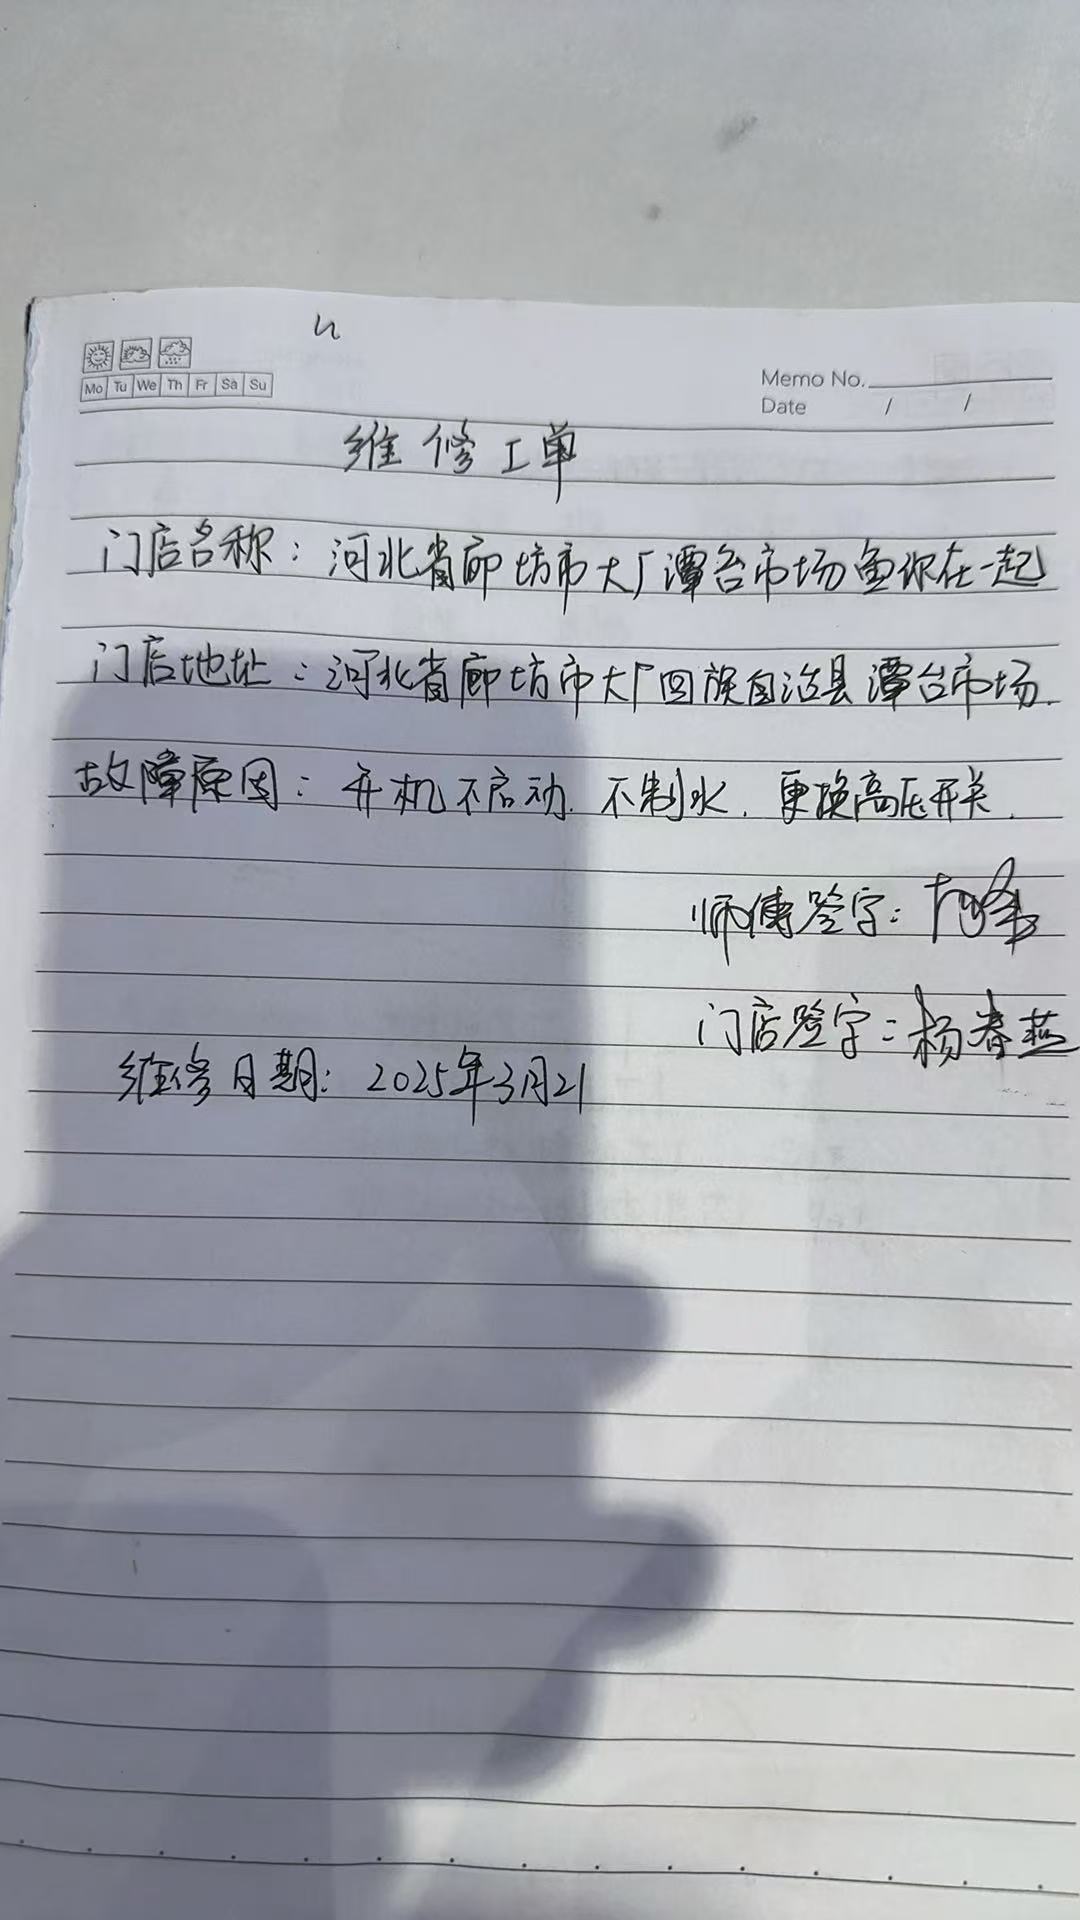 Mo Tu We Th Fr Sa Su
Memo No.
Date / /
维修工单
门店名称：河北省廊坊市大厂潭台市场鱼你在一起
门店地址：河北省廊坊市大厂回族自治县潭台市场.
故障原因：开机不启动.不制水.更换高压开关.
师傅签字：
门店签字：杨春燕
维修日期：2025年3月21